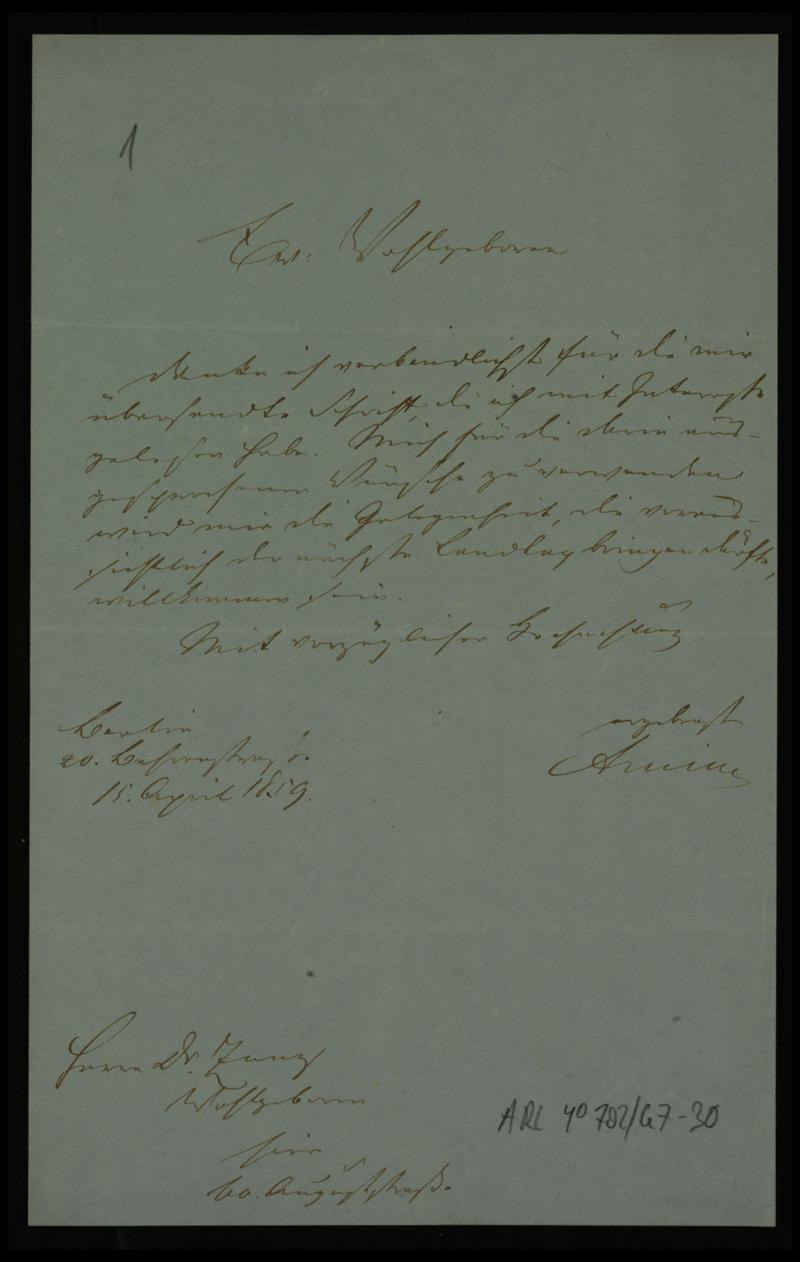 1
Ew: Wohlgeboren
danke ich verbindlichst für die mir
übersandte Schrift, die ich mit Interesse
gelesen habe. Mich für die darin aus-
gesprochenen Wünsche zu verwenden
wird mir die Gelegenheit, die voraus-
sichtlich der nächste Landtag bringen dürfte,
willkommen sein.
Mit vorzüglicher Hochachtung
ergebenst
Arnim
Berlin
20. Behrenstraße.
15. April 1859.
Herrn Dr. Zunz
Wohlgeboren
hier
60. Auguststraße.
ARC 4º 792/G7-30